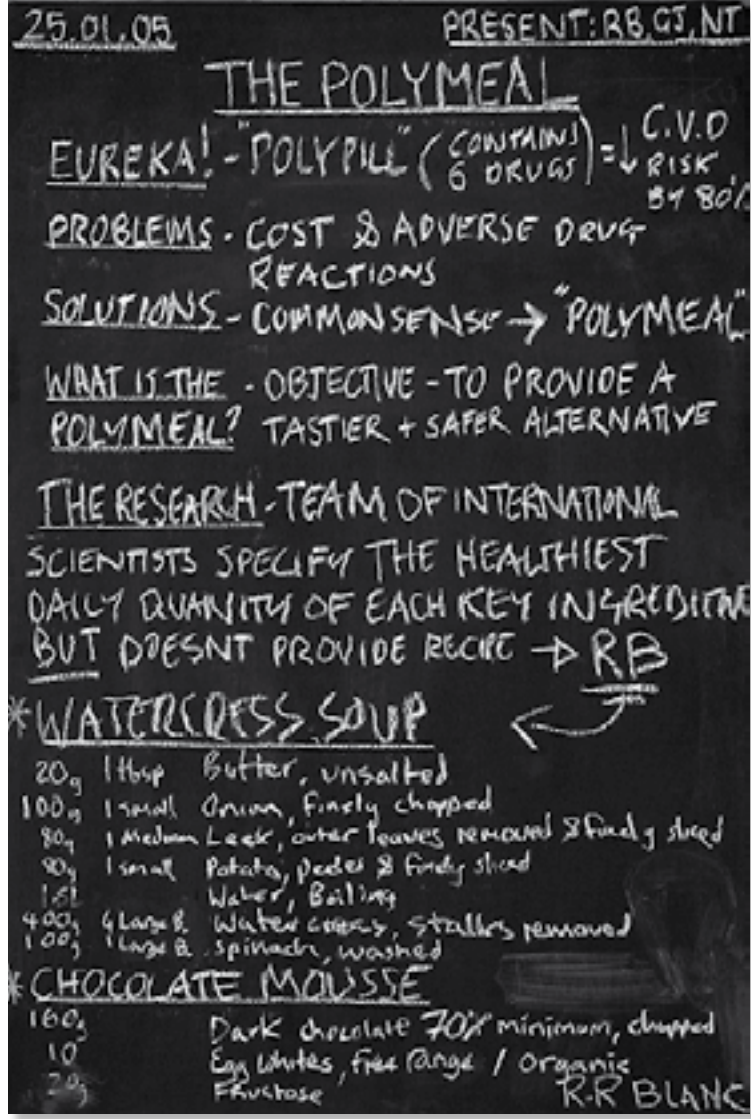 25.01.05 PRESENT: RB, GJ, NT
THE POLYMEAL
EUREKA! - "POLYPILL" (CONTAINS 6 DRUGS) = ↓ C.V.D RISK BY 80%
PROBLEMS - COST & ADVERSE DRUG
REACTIONS
SOLUTIONS - COMMONSENSE → "POLYMEAL"
WHAT IS THE - OBJECTIVE - TO PROVIDE A
POLYMEAL? TASTIER + SAFER ALTERNATIVE
THE RESEARCH - TEAM OF INTERNATIONAL
SCIENTISTS SPECIFY THE HEALTHIEST
DAILY QUANITY OF EACH KEY INGREDIENT
BUT DOESNT PROVIDE RECIPE → RB
*WATERCRESS SOUP
20g 1 tbsp Butter, unsalted
100g 1 small Onion, finely chopped
80g 1 Medium Leek, outer leaves removed & finely sliced
1 small Potato, peeled & finely sliced
Water, Boiling
400g 4 Large B. Watercress, stalks removed
100g 1 Large B. Spinach, washed
*CHOCOLATE MOUSSE
160g Dark chocolate 70% minimum, chopped
10 Egg whites, free range / organic
20g Fructose
R.R BLANC